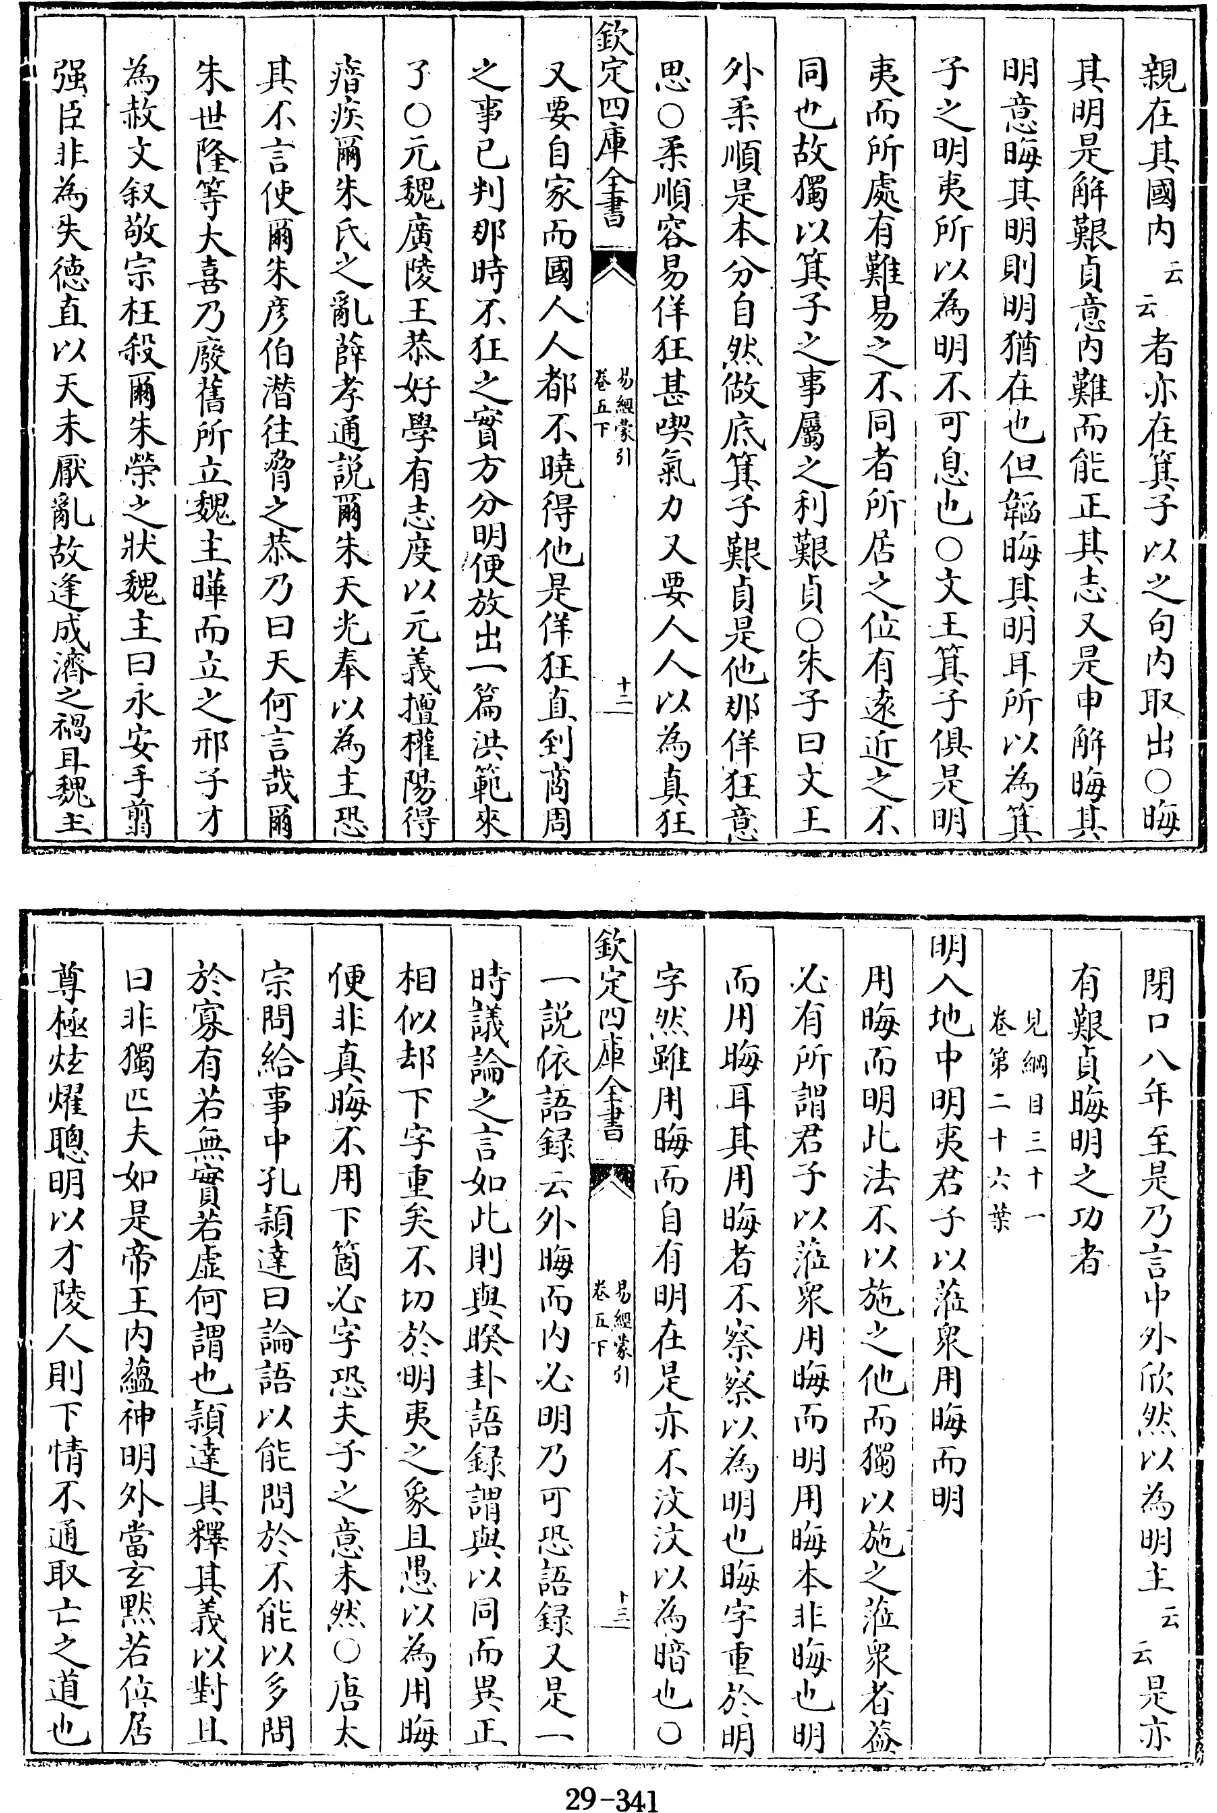 親在其國内云云者亦在箕子以之句内取出○晦
其明是解艱貞意内難而能正其志又是申解晦其
明意晦其明則明猶在也但韜晦其明耳所以為箕
子之明夷所以為明不可息也○文王箕子俱是明
夷而所處有難易之不同者所居之位有遠近之不
同也故獨以箕子之事屬之利艱貞○朱子曰文王
外柔順是本分自然做底箕子艱貞是他那佯狂意
思○柔順容易佯狂甚喫氣力又要人人以為真狂
欽定四庫全書
易經蒙引
卷五下
十二
又要自家而國人人都不曉得他是佯狂直到商周
之事已判那時不狂之實方分明便放出一篇洪範來
了○元魏廣陵王恭好學有志度以元義擅權陽得
瘖疾爾朱氏之亂薛孝通説爾朱天光奉以為主恐
其不言使爾朱彦伯潜往脅之恭乃曰天何言哉爾
朱世隆等大喜乃廢舊所立魏主曄而立之邢子才
為赦文叙敬宗枉殺爾朱榮之狀魏主曰永安手翦
强臣非為失徳直以天未厭亂故逢成濟之禍耳魏主
閉口八年至是乃言中外欣然以為明主云云是亦
有艱貞晦明之功者
見綱目三十一
卷第二十六葉
明入地中明夷君子以蒞衆用晦而明
用晦而明此法不以施之他而獨以施之蒞衆者葢
必有所謂君子以蒞衆用晦而明用晦本非晦也明
而用晦耳其用晦者不察察以為明也晦字重於明
字然雖用晦而自有明在是亦不汶汶以為暗也○
欽定四庫全書
易經蒙引
卷五下
十三
一説依語録云外晦而内必明乃可恐語録又是一
時議論之言如此則與睽卦語録謂與以同而異正
相似却下字重矣不切於明夷之象且愚以為用晦
便非真晦不用下箇必字恐夫子之意未然○唐太
宗問給事中孔穎達曰論語以能問於不能以多問
於寡有若無實若虛何謂也穎達具釋其義以對且
曰非獨匹夫如是帝王内蘊神明外當玄黙若位居
尊極炫燿聰明以才陵人則下情不通取亡之道也
29-341